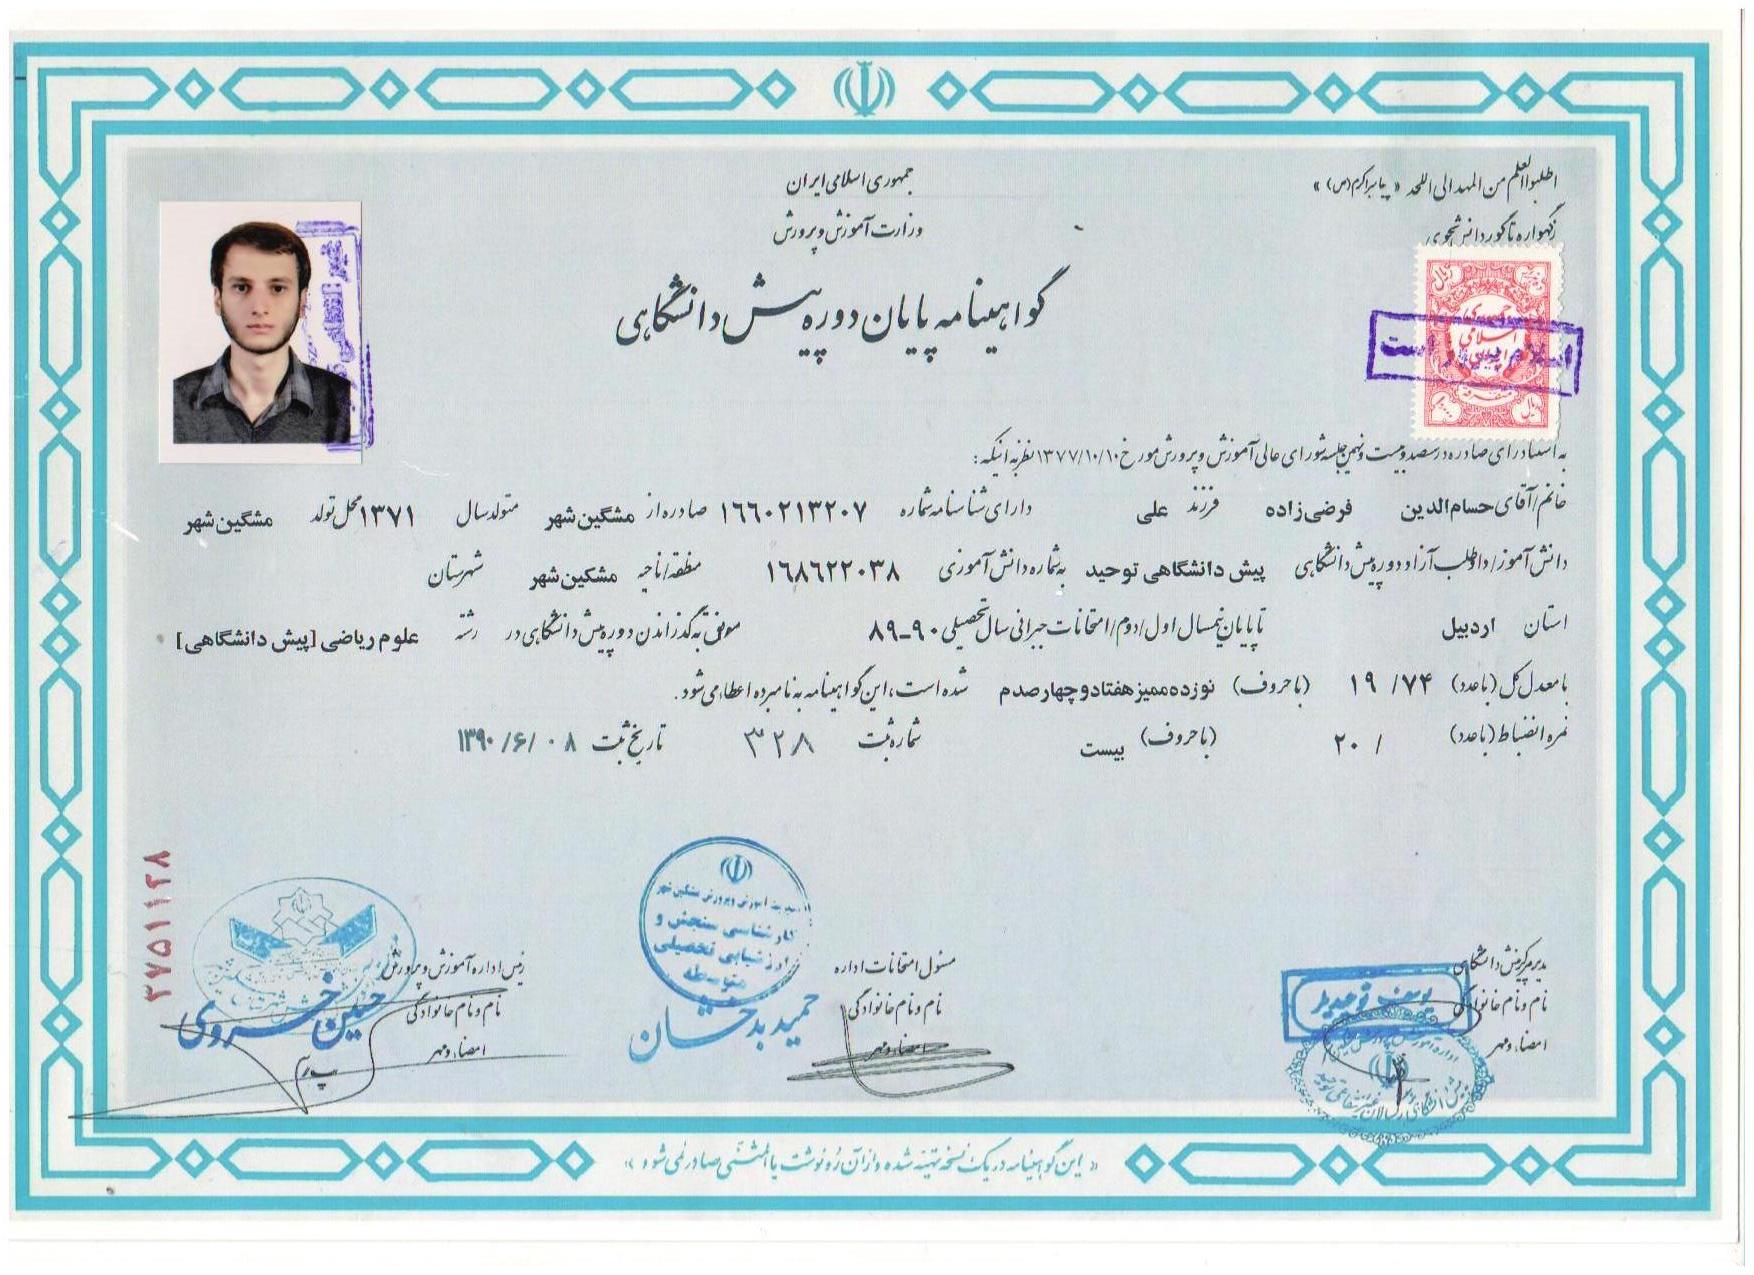 جمهوری اسلامی ایران
وزارت آموزش و پرورش
اطلبوا العلم من المهد الی اللحد « پیامبر اکرم (ص) »
ز گهواره تا گور دانش بجوی
گواهینامه پایان دوره پیش دانشگاهی
به استناد رای صادره در سیصد و بیست و نهمین جلسه شورای عالی آموزش و پرورش مورخ ۱۳۷۷/۱۰/۱۰ نظر به اینکه :
خانم/آقای حسام‌الدین فرضی‌زاده فرزند علی دارای شناسنامه شماره ۱۶۶۰۲۱۳۲۰۷ صادره از مشگین‌شهر متولد سال ۱۳۷۱ محل تولد مشگین‌شهر
دانش آموز/داوطلب آزاد دوره پیش دانشگاهی پیش دانشگاهی توحید به شماره دانش آموزی ۱۶۸۶۲۲۰۳۸ منطقه/ناحیه مشگین‌شهر شهرستان
استان اردبیل تا پایان نیمسال اول/دوم/امتحانات جبرانی سال تحصیلی ۹۰-۸۹ موفق به گذراندن دوره پیش دانشگاهی در رشته علوم ریاضی [پیش دانشگاهی]
با معدل کل (با عدد) ۱۹/۷۴ (با حروف) نوزده ممیز هفتاد و چهار صدم شده است، این گواهینامه به نامبرده اعطاء می شود.
نمره انضباط (با عدد) ۲۰/ (با حروف) بیست شماره ثبت ۳۲۸ تاریخ ثبت ۱۳۹۰/۶/۰۸
۲۷۵۱۱۲۸
مدیر مرکز پیش دانشگاهی
نام و نام خانوادگی
امضاء و مهر
مسئول امتحانات اداره
نام و نام خانوادگی
امضاء و مهر
حمید بدخسان
مدیریت آموزش و پرورش مشگین شهر
کارشناسی سنجش و
ارزشیابی تحصیلی
متوسطه
رئیس اداره آموزش و پرورش
نام و نام خانوادگی
امضاء و مهر
حسین خسروی
« این گواهینامه در یک نسخه تهیه شده و از آن رونوشت یا المثنی صادر نمی شود »